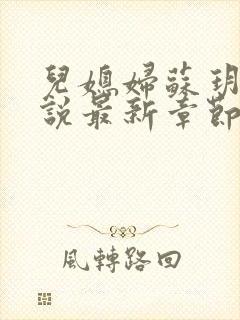 兒媳婦蘇玥
說最新章節
風轉路回